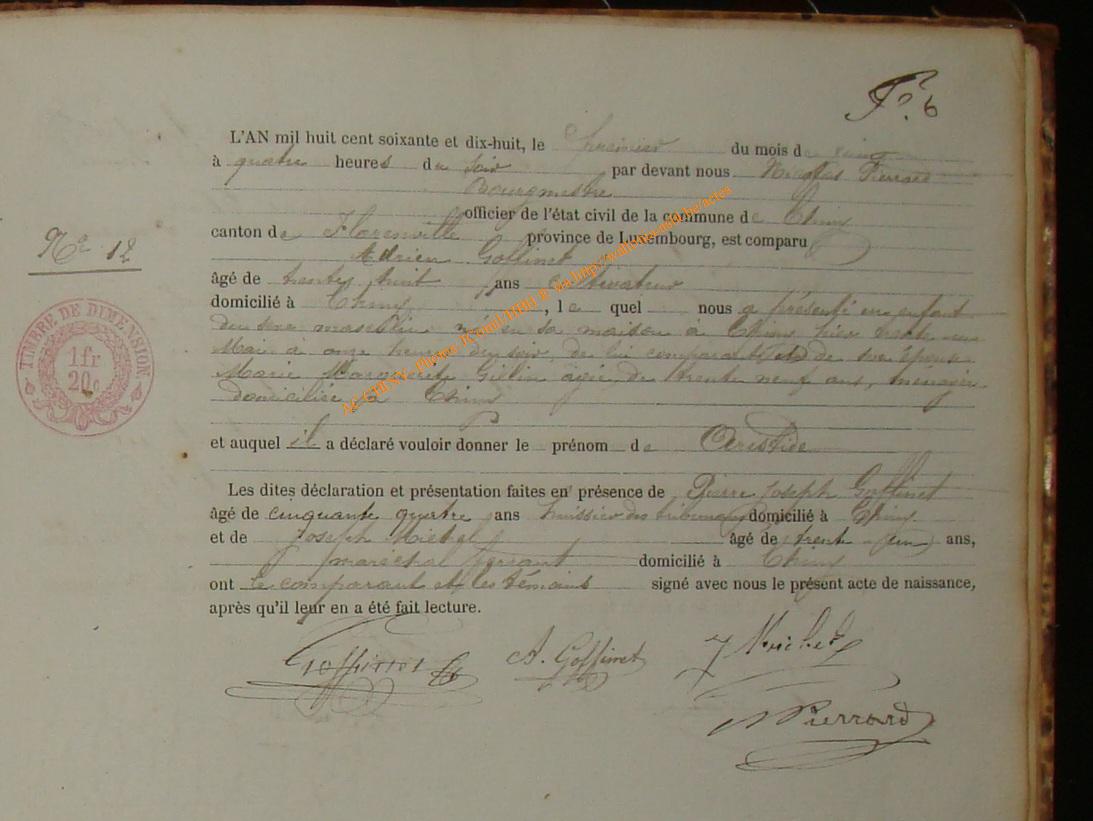 F°. 6
L'AN mil huit cent soixante et dix-huit, le premier du mois de juin
à quatre heures du soir par devant nous Nicolas Pierrard
Bourgmestre
officier de l'état civil de la commune de Chiny
canton de Florenville province de Luxembourg, est comparu
Adrien Goffinet
N° 12
âgé de trente huit ans cultivateur
domicilié à Chiny, le quel nous a présenté un enfant
du sexe masculin né en sa maison à Chiny hier trente un
Mai à onze heures du soir, de lui comparant et de son épouse
Marie Marguerite Gillin âgée de trente neuf ans, ménagère
domiciliée à Chiny
et auquel il a déclaré vouloir donner le prénom de Aristide
Les dites déclaration et présentation faites en présence de Pierre Joseph Goffinet
âgé de cinquante quatre ans huissier des tribunaux domicilié à Chiny
et de Joseph Michel âgé de trente un ans,
maréchal ferrant domicilié à Chiny
ont le comparant et les témoins signé avec nous le présent acte de naissance,
après qu'il leur en a été fait lecture.
Goffinet A. Goffinet J Michel
N Pierrard
TIMBRE DE DIMENSION
1 fr
20c